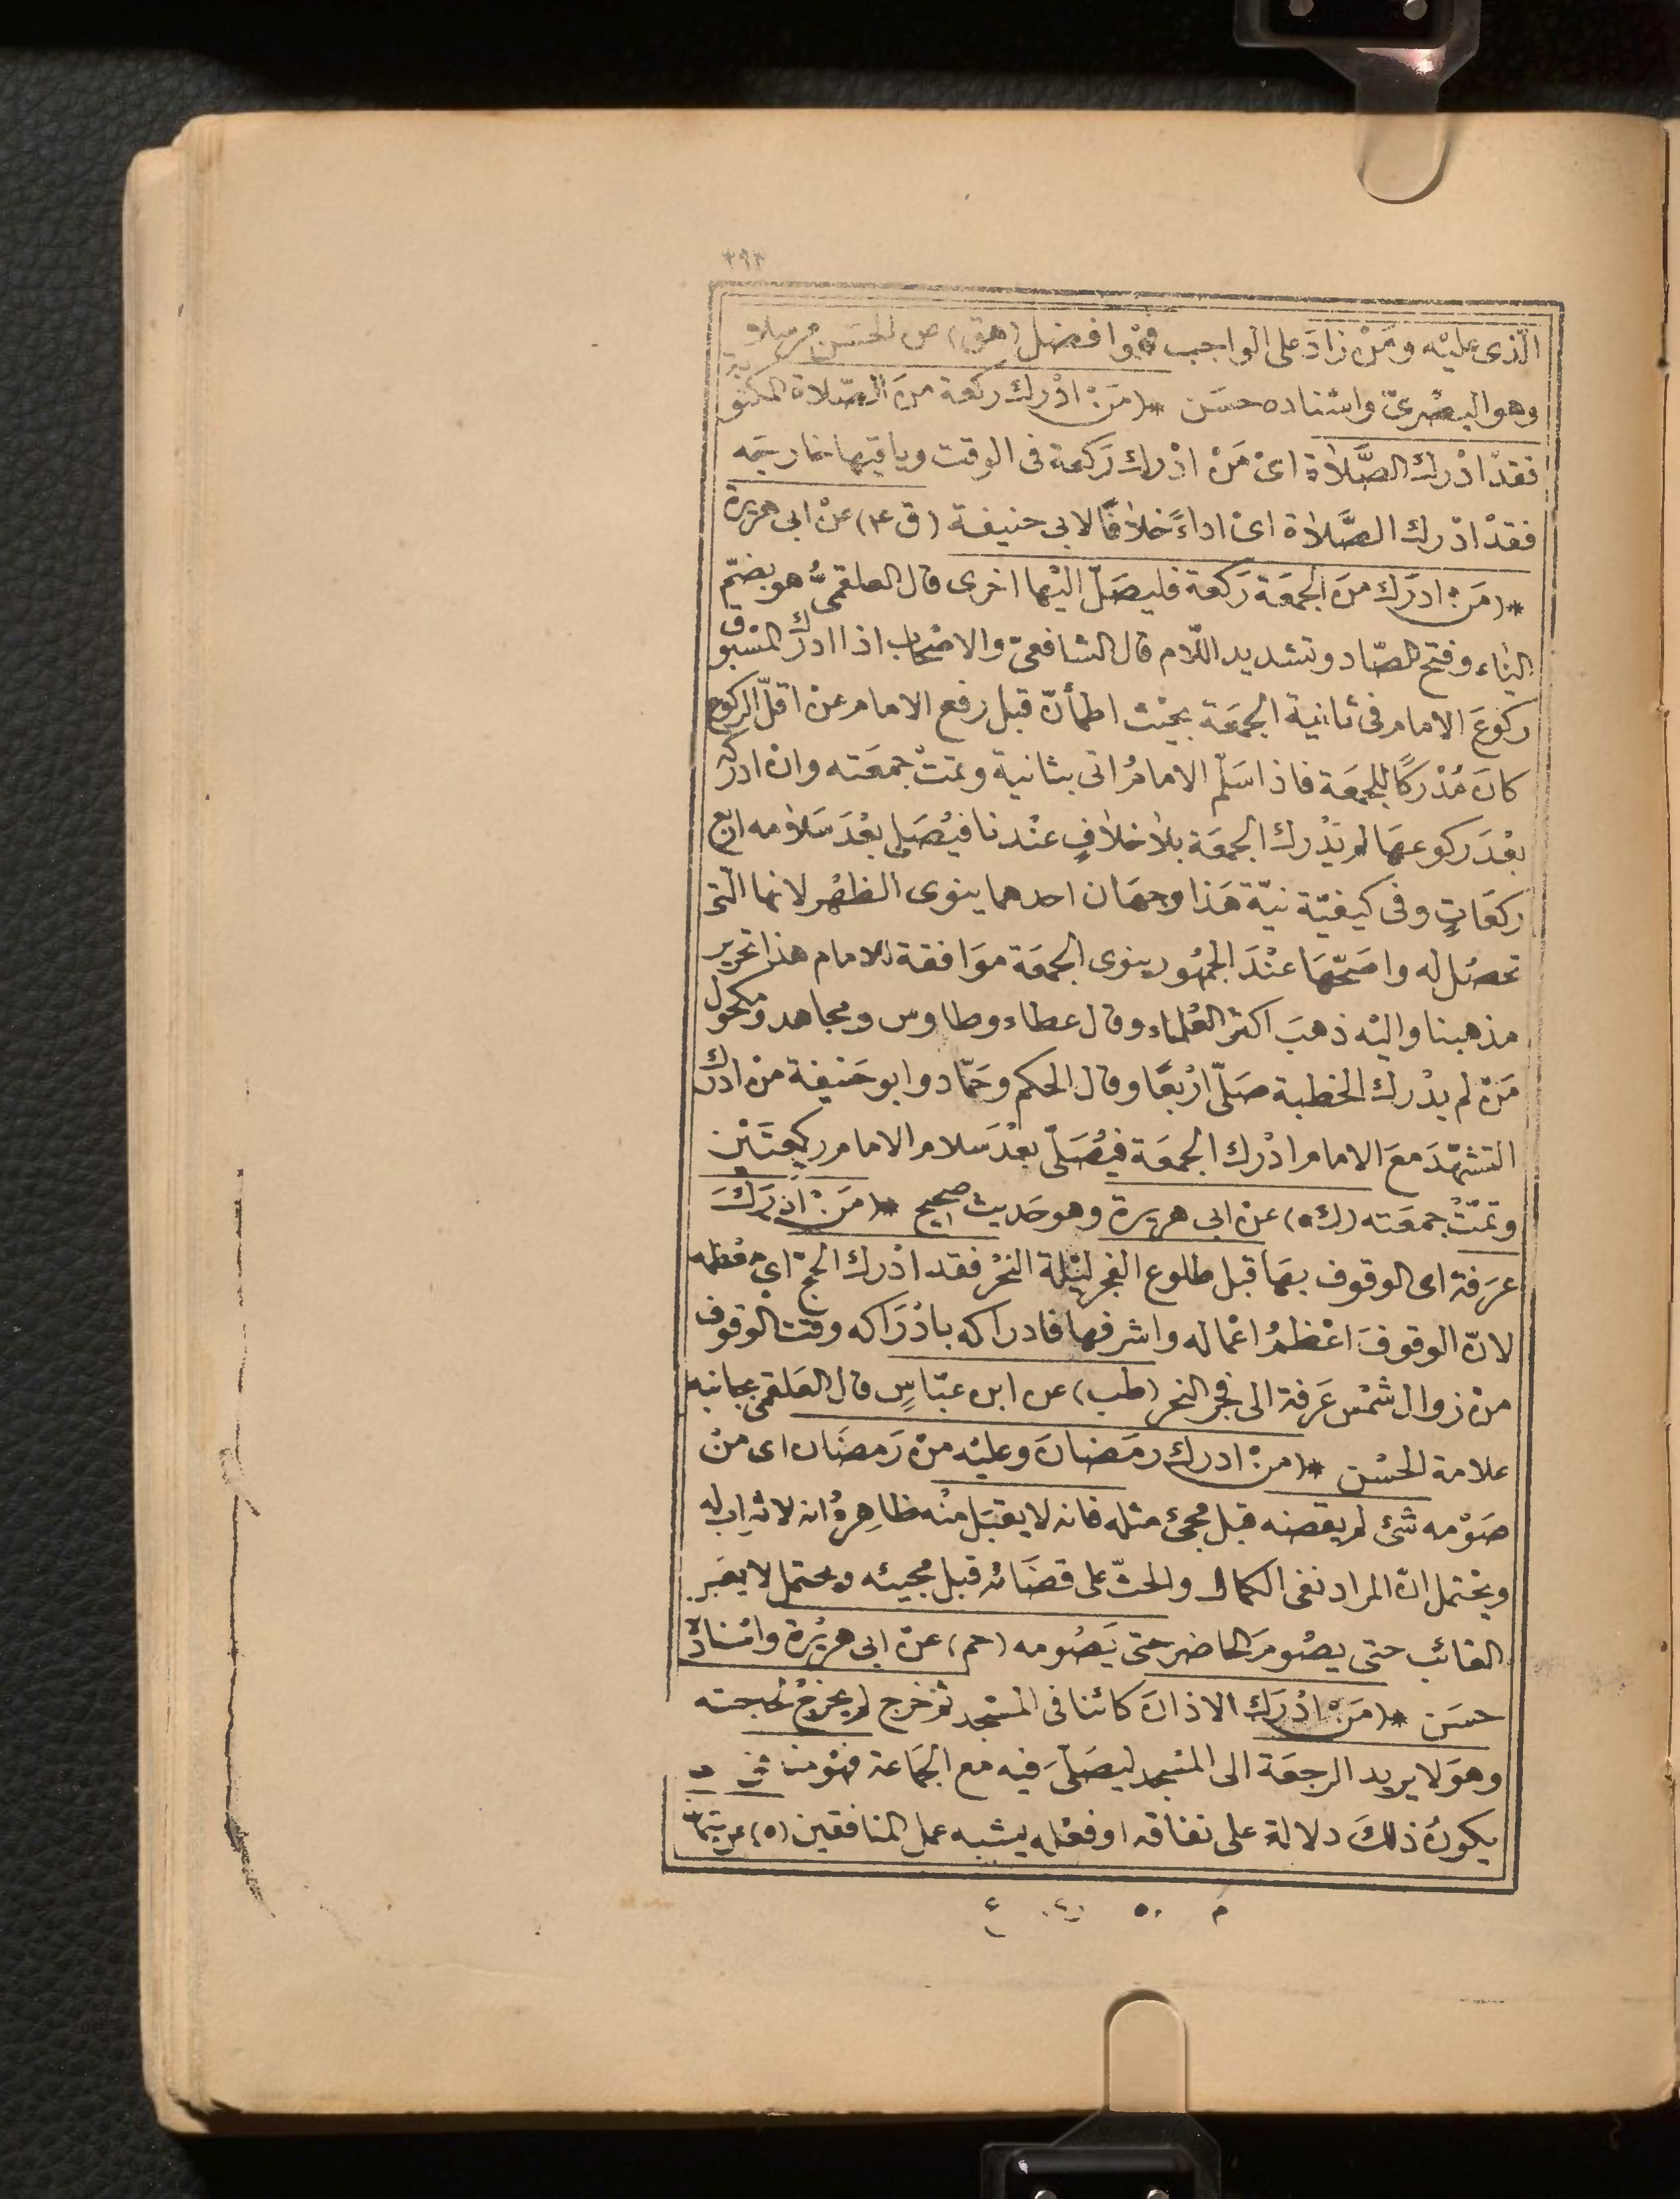 الّذى عليْه ومَنْ زادَ على الواجب فهُوا فضل (هق) عن الحسَن مرسلا
وهو البصْرىّ واسْناده حسَن * (مَنْ ادْرك ركعة منَ الصّلاة المكتوبة
فقدْ ادْرك الصَّلاة اىْ مَنْ ادْرك رَكعة فى الوقت وباقيها خارجَه
فقدْ ادْرك الصَّلاة اىْ اداءً خلافًا لابى حنيفة (ق ٤) عنْ ابى هريرة
* (مَنْ ادرَك منَ الجمعَة رَكعة فليصَلّ اليْها اخرى قال العلقمىُّ هو بضمّ
الياء وفتح الصّاد وتشديد اللّام قال الشافعىّ والاصْحاب اذا ادرَك المسْبوق
ركوعَ الامام فى ثانية الجمعَة بحيْث اطمأنّ قبل رفع الامام عنْ اقلّ الركوع
كانَ مُدْركًا للجمعَة فاذا سَلّم الامامُ اتى بثانية وتمتْ جمعَته وانْ ادركه
بعْدَ ركوعهَا لم يَدْرك الجمعَة بلا خلافٍ عنْدنا فيُصَلى بعْدَ سَلامه اربع
ركعَاتٍ وفى كيفيّة نيّة هَذا وجهَان احدهما ينوى الظهْر لانها الّتى
تحصُل له واصَحّهَا عنْدَ الجمهُور ينوى الجمعَة موَافقة للامام هذا تحرير
مذهبنا واليْه ذهبَ اكثر العُلماء وقال عطاء وطاوس ومجاهد ومكحول
مَنْ لم يدْرك الخطبة صَلّى ارْبعًا وقال الحكم وحَمّاد وابو حَنيفة منْ ادرَك
التشهّدَ معَ الامام ادْرك الجمعَة فيُصَلّى بعْدَ سلام الامام ركعتَيْن
وتمّتْ جمعَته (ك ه) عنْ ابى هريرة وهو حَديث صحيح * (مَنْ ادْرَكَ
عرَفة اى الوقوف بهَا قبل طلوع الفجر ليْلة النحْر فقد ادْرك الحج اى معْظمه
لانّ الوقوفَ اعْظمُ اعْماله واشرفها فادراكه بادْرَاكه ووقت الوقوف
منْ زوال شمْس عَرفة الى فجر النحر (طب) عن ابن عبّاسٍ قال العَلقمى بجانبه
علامة الحسْن * (منْ ادرك رمَضانَ وعليْه منْ رَمضَان اى منْ
صَوْمه شئ لم يقضه قبل مجئ مثله فانه لا يقبَل منْه ظاهِرهُ انه لا ثواب له
ويحْتمل انّ المراد نفى الكمال والحثّ على قضَائه قبل مجيئه ويحتمل لا يعَبر
الغائب حتى يصُومَ الحاضر حتى يَصُومه (حم) عنْ ابى هريْرة واسْنادهُ
حسَن * (مَنْ ادْرَك الاذانَ كائنا فى المسْجد ثم خرج لم يخرجْ لحاجته
وهوَ لا يريد الرجعَة الى المسْجد ليصَلّىَ فيه مع الجمَاعة فهُو منافق
يكونُ ذلكَ دلالة على نفاقه او فعْله يشبه عمل المنافقين (ه) عن عثمان